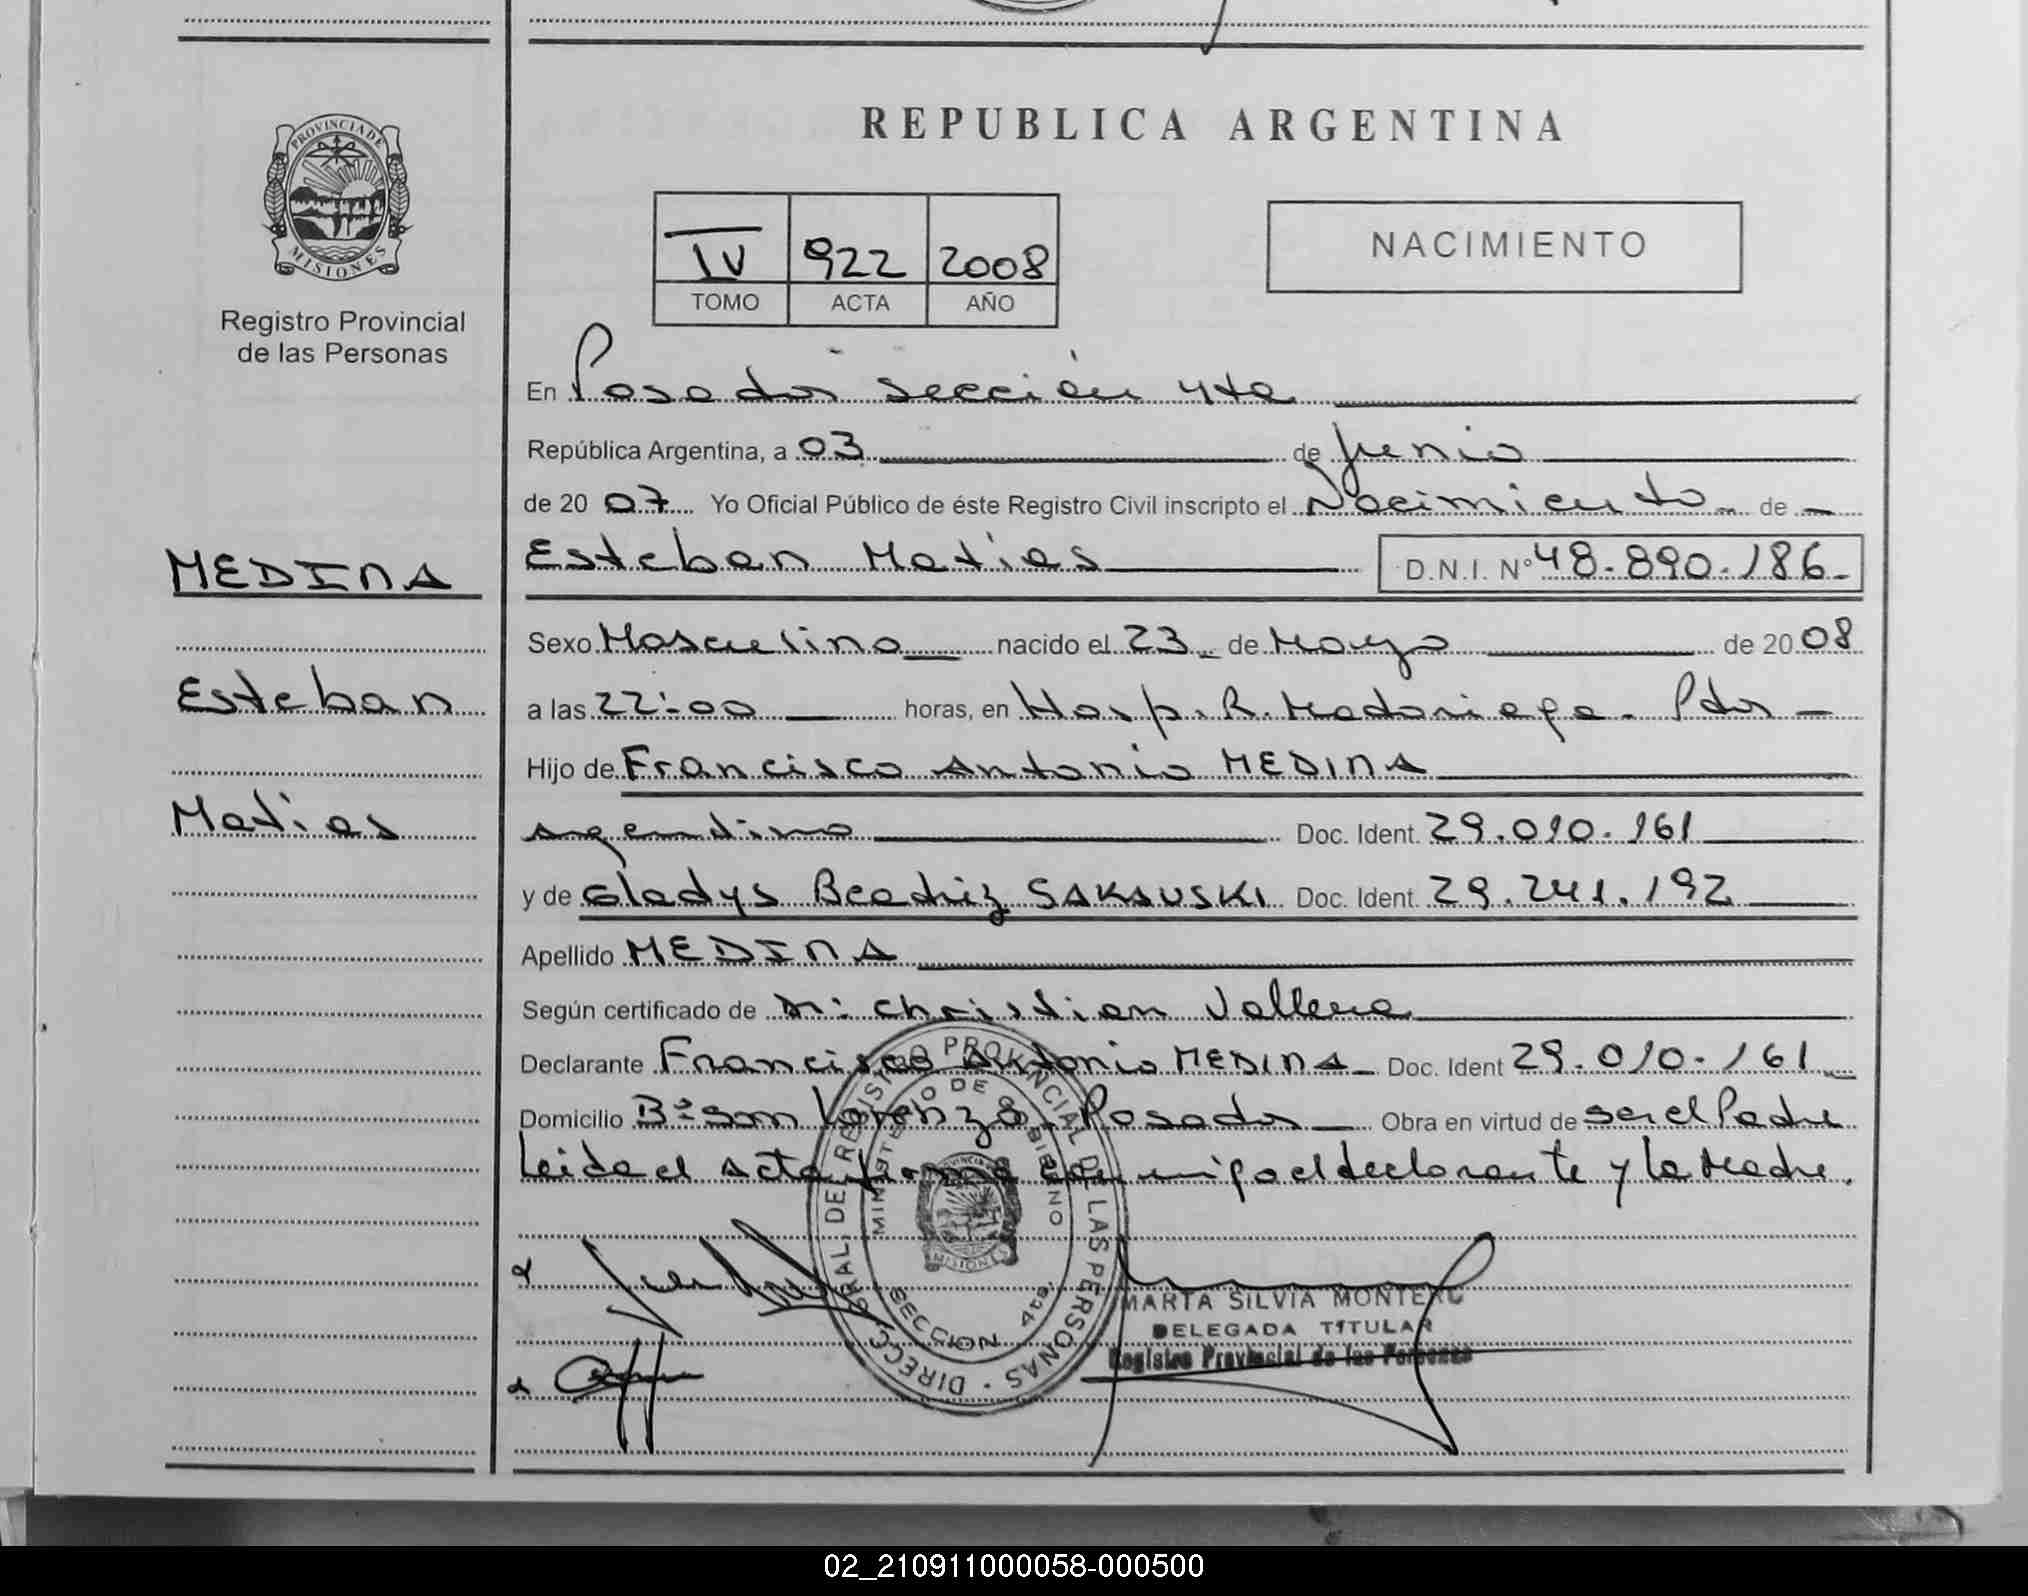 REPUBLICA ARGENTINA
PROVINCIA DE MISIONES
Registro Provincial
de las Personas
IV 922 2008
TOMO ACTA AÑO
NACIMIENTO
En Posadas sección 4ta
República Argentina, a 03 de Junio
de 2007 Yo Oficial Público de éste Registro Civil inscripto el Nacimiento de
Esteban Matias D.N.I. Nº 48.890.186
MEDINA
Esteban
Matias
Sexo Masculino nacido el 23 de Mayo de 2008
a las 22:00 horas, en Hosp. R. Madariaga - Pdas
Hijo de Francisco Antonio MEDINA
argentino Doc. Ident. 29.010.161
y de Gladys Beatriz SAKAUSKI Doc. Ident. 29.241.192
Apellido MEDINA
Según certificado de Dr: Christian
Declarante Francisco Antonio MEDINA Doc. Ident 29.010.161
Domicilio Bº San Lorenzo - Posadas Obra en virtud de ser el Padre
Leida el Acta firma conmigo el declarante y la Madre.
DIRECC. GRAL. DEL REGISTRO PROVINCIAL DE LAS PERSONAS
MINISTERIO DE GOBIERNO
PROVINCIA DE MISIONES
SECCION 4ta.
MARTA SILVIA MONTERO
DELEGADA TITULAR
Registro Provincial de las Personas
02_210911000058-000500